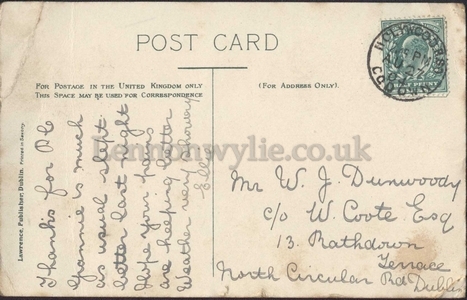 POST CARD
FOR POSTAGE IN THE UNITED KINGDOM ONLY
THIS SPACE MAY BE USED FOR CORRESPONDENCE
(FOR ADDRESS ONLY.)
Lawrence, Publisher, Dublin. Printed in Saxony.
Thanks for P.C
Grannie is much
as usual slept
better last night
Hope your paws
are keeping better
Weather very showery
Ella
Mr W. J. Dunwoody
c/o W. Coote Esq
13. Rathdown
Terrace
North Circular Rd Dublin
Lennonwylie.co.uk